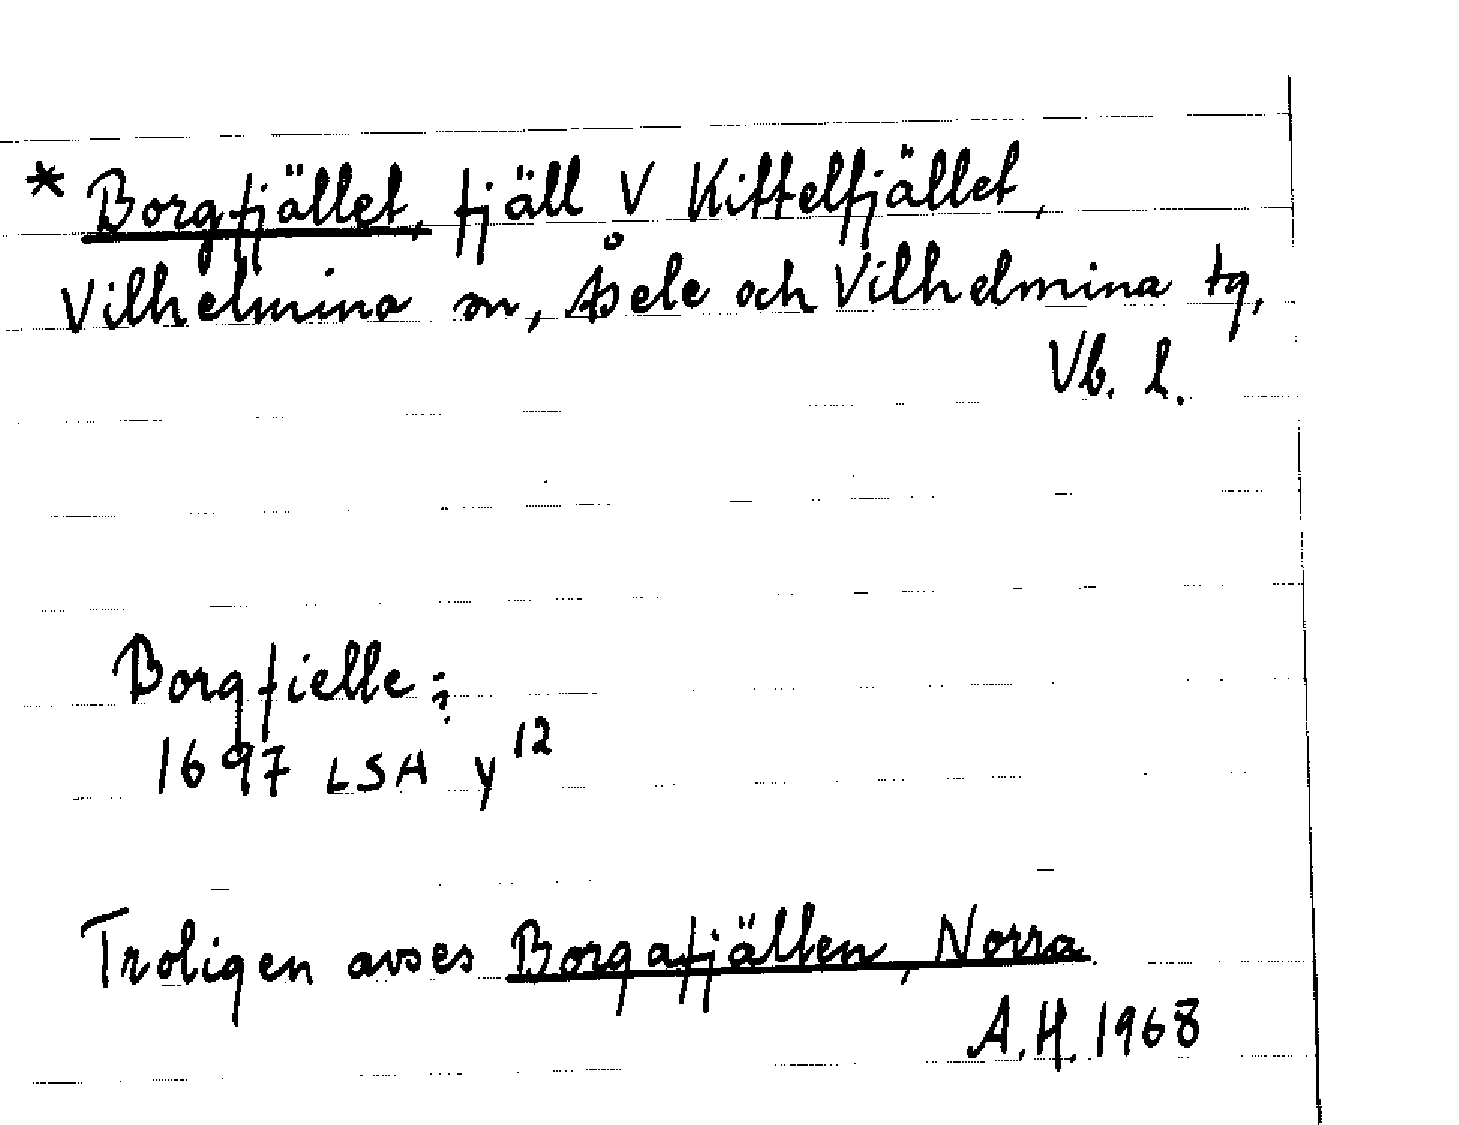 * Borgfjället, fjäll V Kittelfjället,
Vilhelmina sn, Åsele och Vilhelmina tg,
Vb. l.
Borgfielle;
1697 LSA y 12
Troligen avses Borgafjällen, Norra.
A.H. 1968